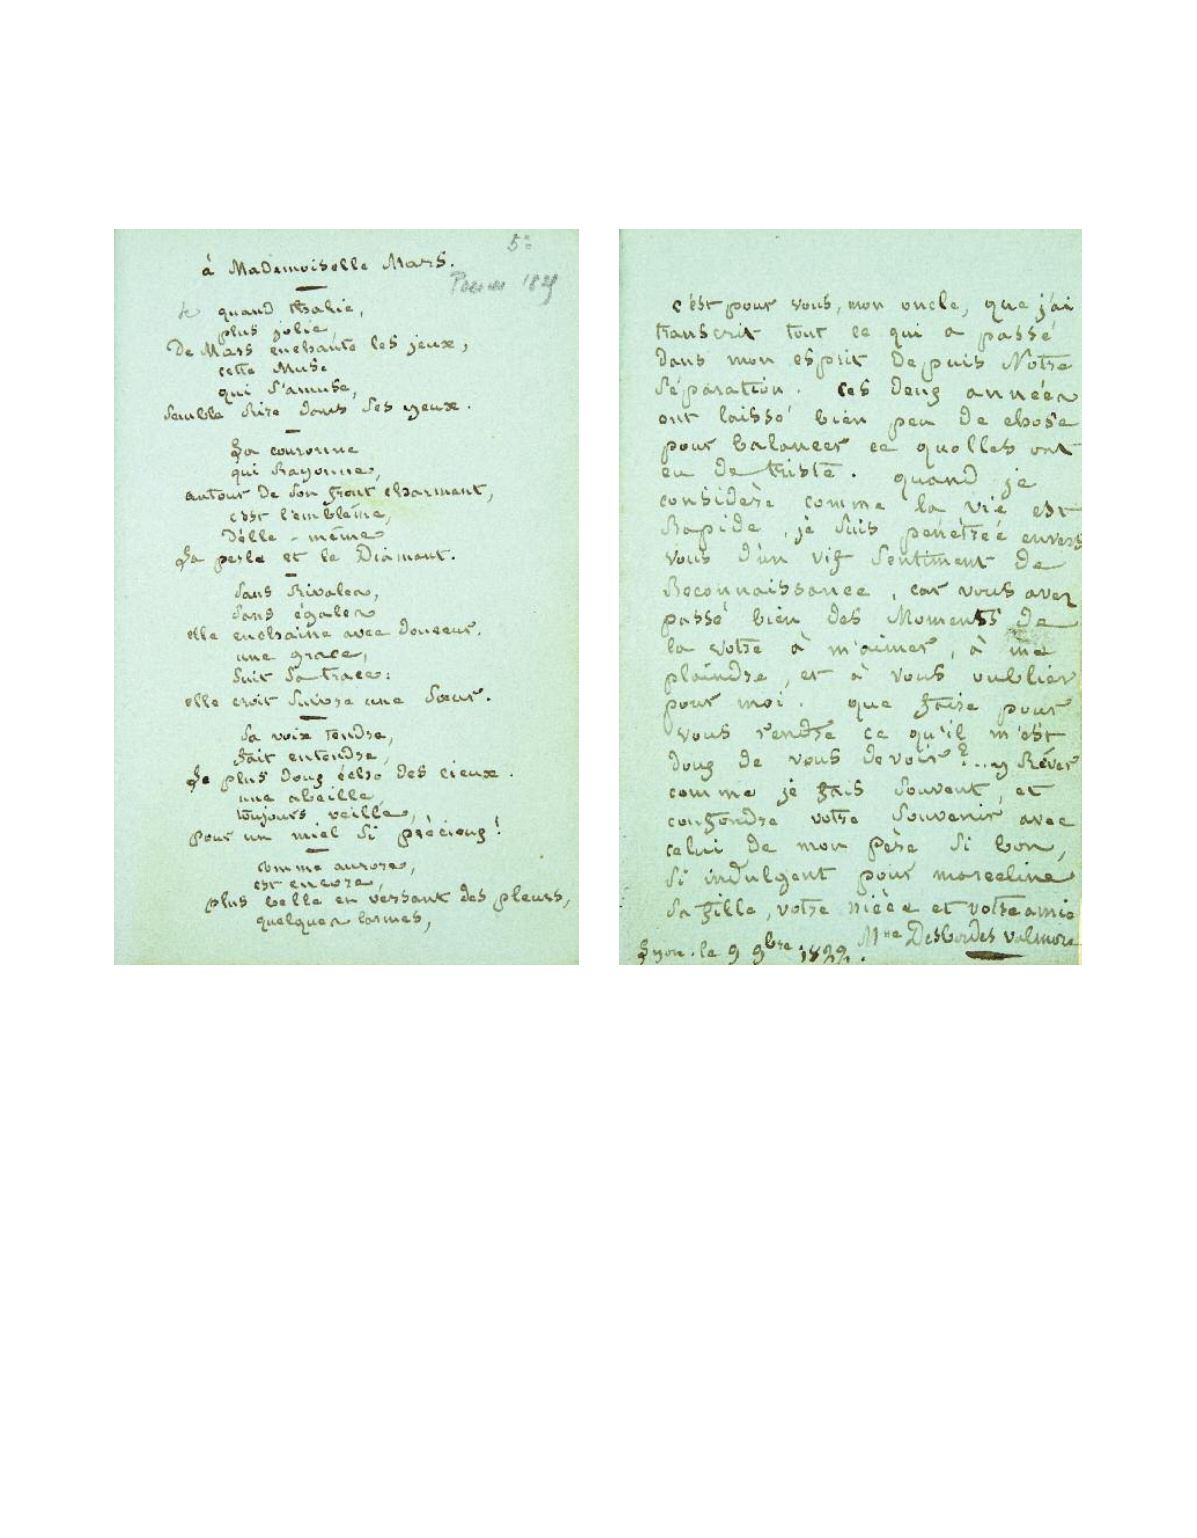 5º
à Mademoiselle Mars.
quand thalie,
plus jolie,
De Mars enchante les jeux,
cette Muse
qui s'amuse,
semble Rire dans ses yeux.
La couronne
qui Rayonne,
autour de son front charmant,
c'est l'emblême,
D'elle-même
La perle et le Diamant.
sans Rivales,
sans égales
elle enchaine avec douceur.
une grace,
suit sa trace:
elle croit suivre une sœur.
sa voix tendre,
fait entendre,
Le plus doux écho des cieux.
une abeille,
toujours veille,
pour un miel si précioux!
comme aurore,
est encore,
plus belle en versant des pleurs,
quelques larmes,
c'est pour vous, mon oncle, que j'ai
transcrit tout ce qui a passé
dans mon esprit Depuis Notre
séparation. Ces deux années
ont laissé bien peu de chose
pour balancer ce qu'elles ont
eu de triste. quand je
considère comme la vie est
Rapide, je suis pénétreé envers
vous d'un vif sentiment de
Reconnaissance, car vous avez
passé bien des Moments de
la votre à m'aimer, à me
plaindre, et à vous oublier
pour moi. que faire pour
vous rendre ce qu'il m'est
doux de vous devoir?... y Rêver
comme je fais souvent, et
confondre votre souvenir avec
celui de mon Père si bon,
si indulgent pour marceline
sa fille, votre nièce et votre amie
Mme Desbordes valmore
Lyon. le 9 9bre 1822.